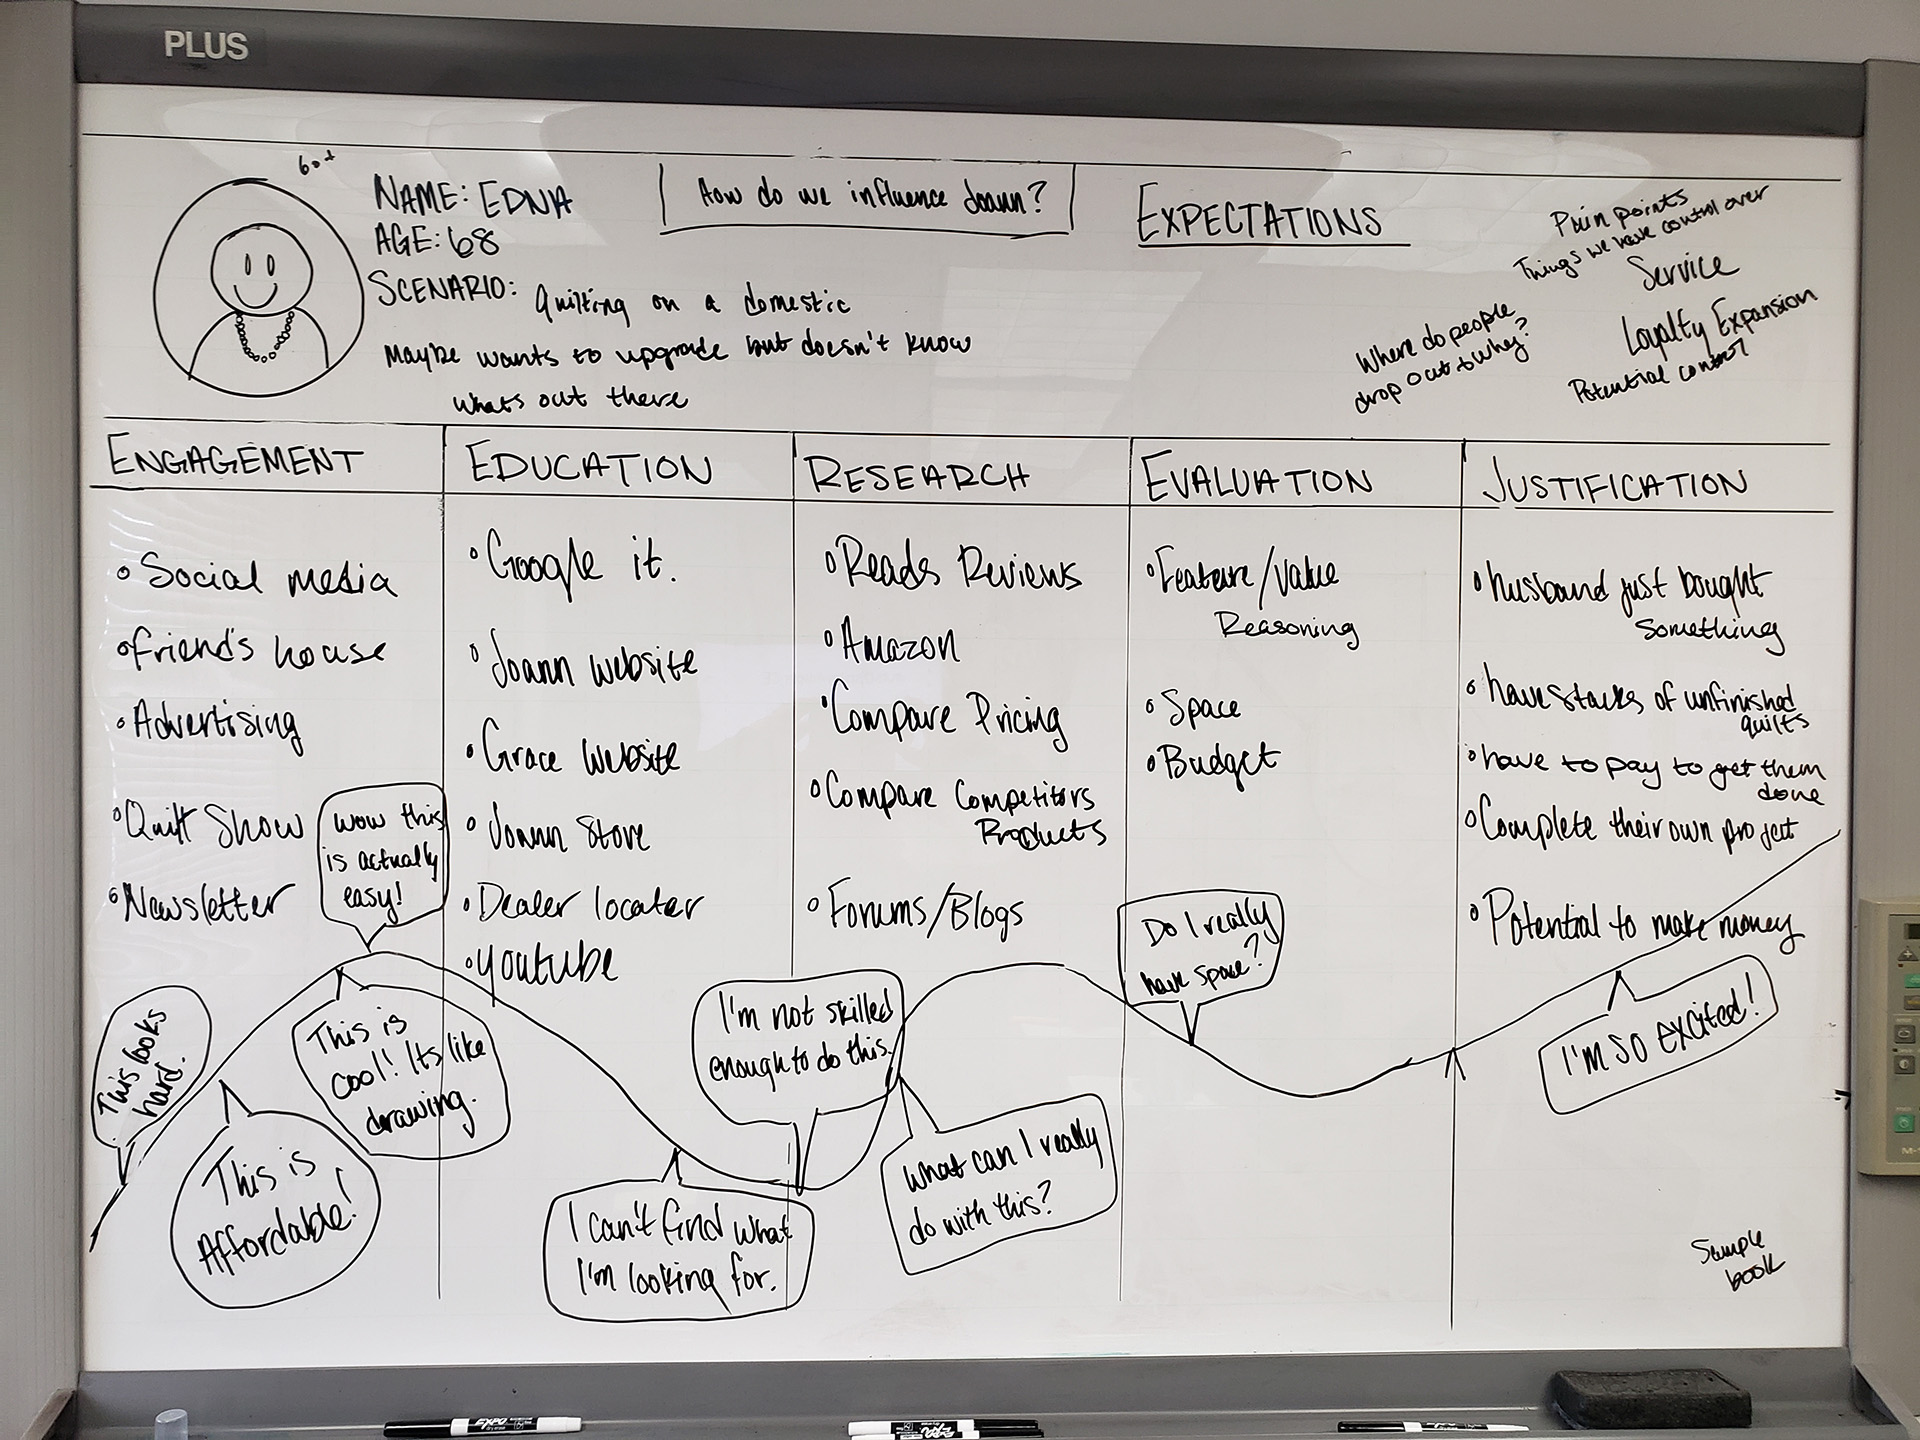 PLUS
60+
NAME: EDNA
AGE: 68
SCENARIO: Quilting on a domestic
Maybe wants to upgrade but doesn't know
whats out there
How do we influence Joann?
EXPECTATIONS
Pain points
Things we have control over
Service
Loyalty Expansion
Potential
Where do people
drop out & why?
ENGAGEMENT
• Social media
• friend's house
• Advertising
• Quilt Show
• Newsletter
wow this
is actually
easy!
This looks
hard.
This is
Affordable!
This is
cool! Its like
drawing.
EDUCATION
• Google it.
• Joann website
• Grace Website
• Joann Store
• Dealer locater
• youtube
I can't find what
I'm looking for.
I'm not skilled
enough to do this.
RESEARCH
• Reads Reviews
• Amazon
• Compare Pricing
• Compare Competitors
Products
• Forums/Blogs
What can I really
do with this?
EVALUATION
• Feature/Value
Reasoning
• Space
• Budget
Do I really
have space?
JUSTIFICATION
• husband just bought
something
• have stacks of unfinished
quilts
• have to pay to get them
done
• Complete their own project
• Potential to make money
I'm so excited!
Sample
book
EXPO